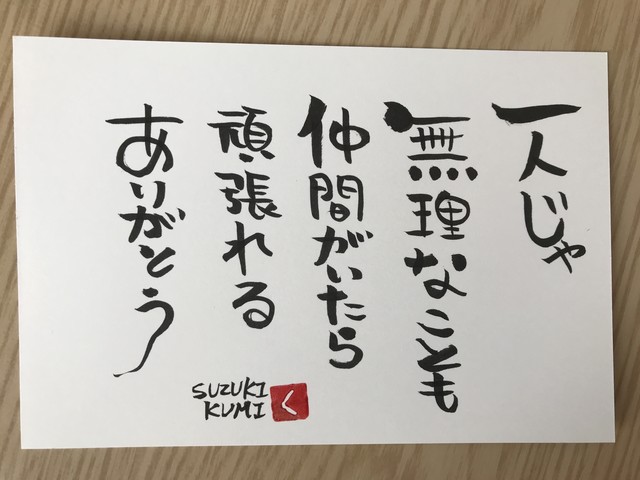 一人じゃ
無理なことも
仲間がいたら
頑張れる
ありがとう
SUZUKI
KUMI
く